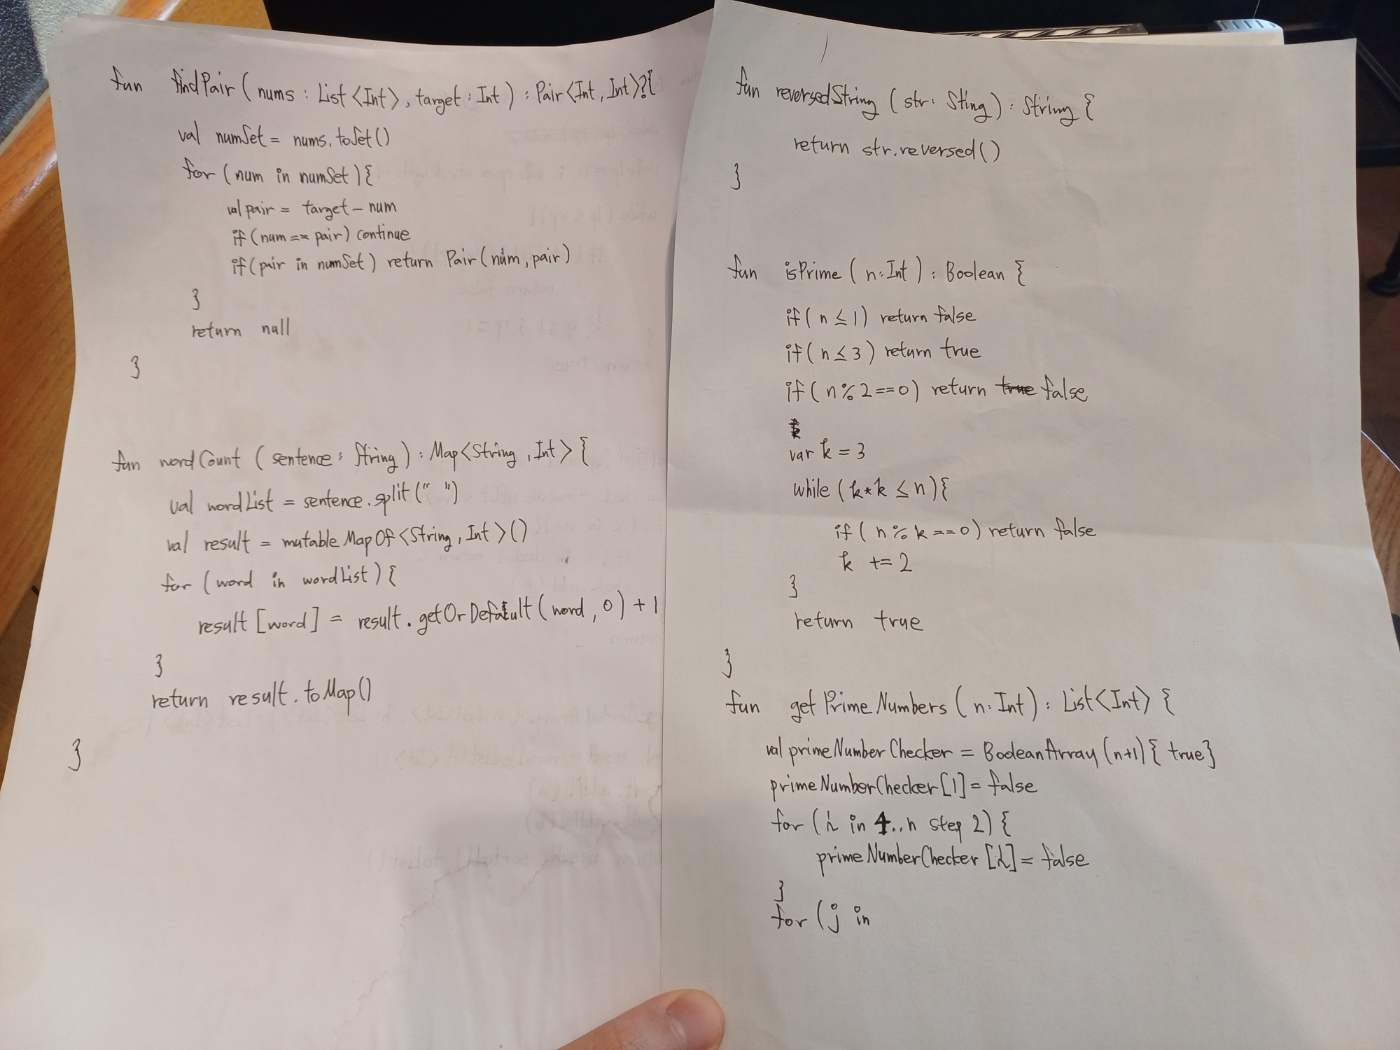 fun findPair ( nums : List <Int>, target : Int ) : Pair <Int, Int>?{
val numSet = nums.toSet()
for (num in numSet){
val pair = target - num
if (num == pair) continue
if (pair in numSet) return Pair (num, pair)
}
return null
}
fun wordCount ( sentence : String ) : Map<String, Int> {
val wordList = sentence.split(" ")
val result = mutableMapOf<String, Int>()
for (word in wordList){
result [word] = result.getOrDefault (word, 0) + 1
}
return result.toMap()
}
fun reversedString ( str : Sting ) : String {
return str.reversed()
}
fun isPrime ( n : Int ) : Boolean {
if ( n ≤ 1) return false
if ( n ≤ 3) return true
if ( n % 2 == 0) return true false
var k = 3
while (k*k ≤ n){
if ( n % k == 0) return false
k += 2
}
return true
}
fun getPrimeNumbers ( n : Int ) : List<Int> {
val primeNumberChecker = BooleanArray (n+1) { true}
primeNumberChecker [1] = false
for (i in 4..n step 2) {
primeNumberChecker [i] = false
}
for (j in